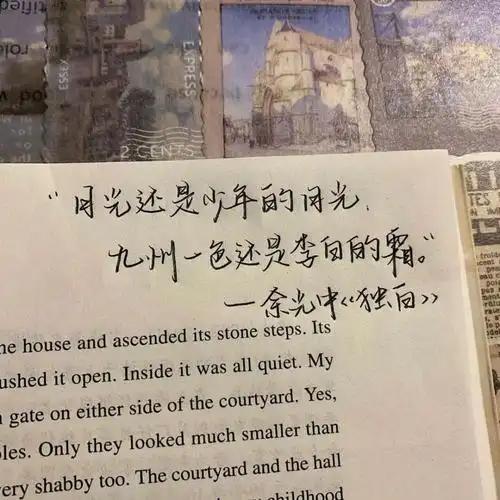 ESSEX
EXPRESS
2 CENTS
"月光还是少年的月光，
九州一色还是李白的霜。"
—余光中《独白》
he house and ascended its stone steps. Its
ushed it open. Inside it was all quiet. My
gate on either side of the courtyard. Yes,
les. Only they looked much smaller than
ery shabby too. The courtyard and the hall
childhood